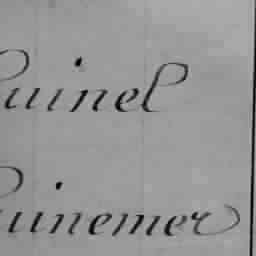 uinel
uinemer